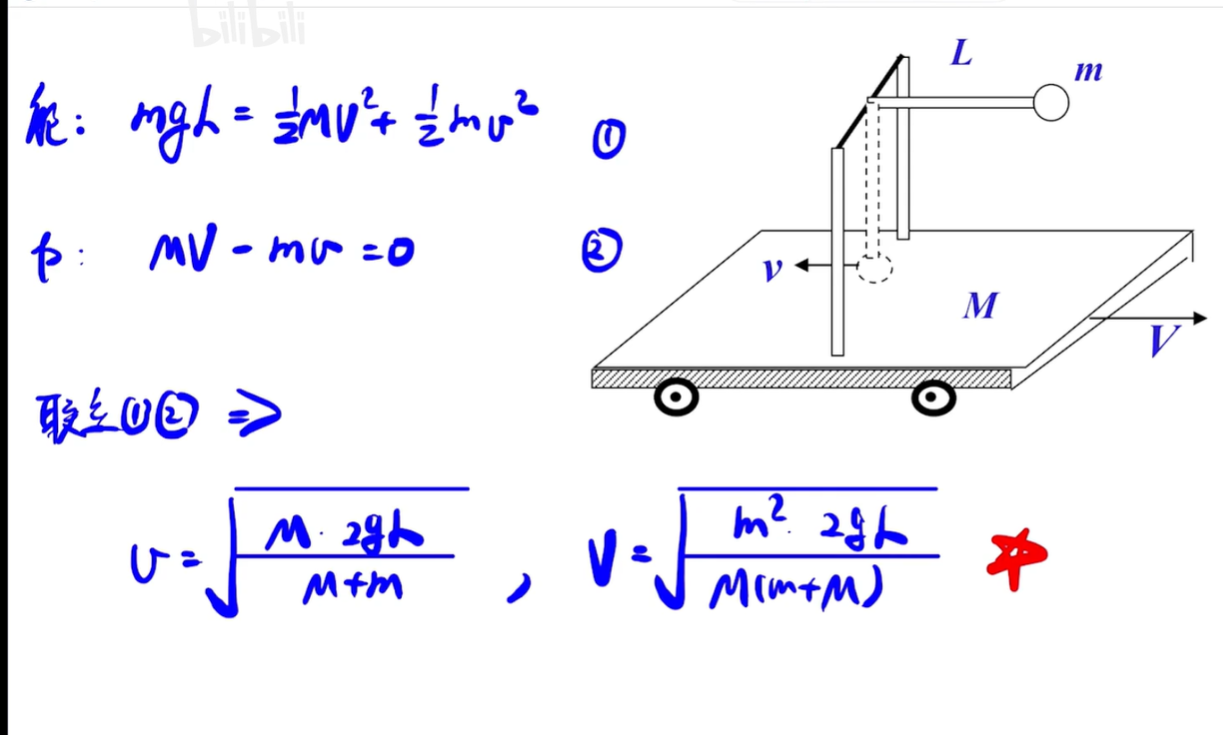 bilibili
能: mgL = ½MV² + ½mv² ①
p: MV - mv = 0 ②
联立①② =>
v = √(M·2gL / M+m) , V = √(m²·2gL / M(m+M))
L
m
v
M
V